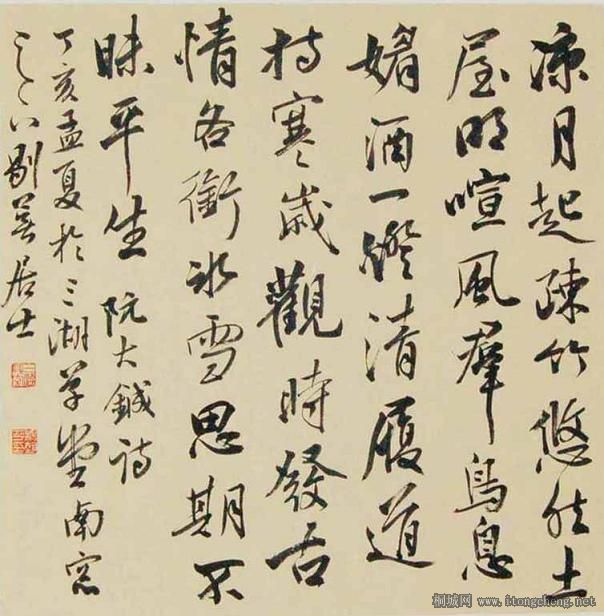 凉月起疎竹悠然土
屋明喧風羣鳥息
媚酒一燈清履道
持寒歲觀時發古
情各銜冰雪思期不
昧平生 阮大鋮詩
丁亥孟夏於三湖草堂南窗
之下剔居士
桐城网 www.itongcheng.net